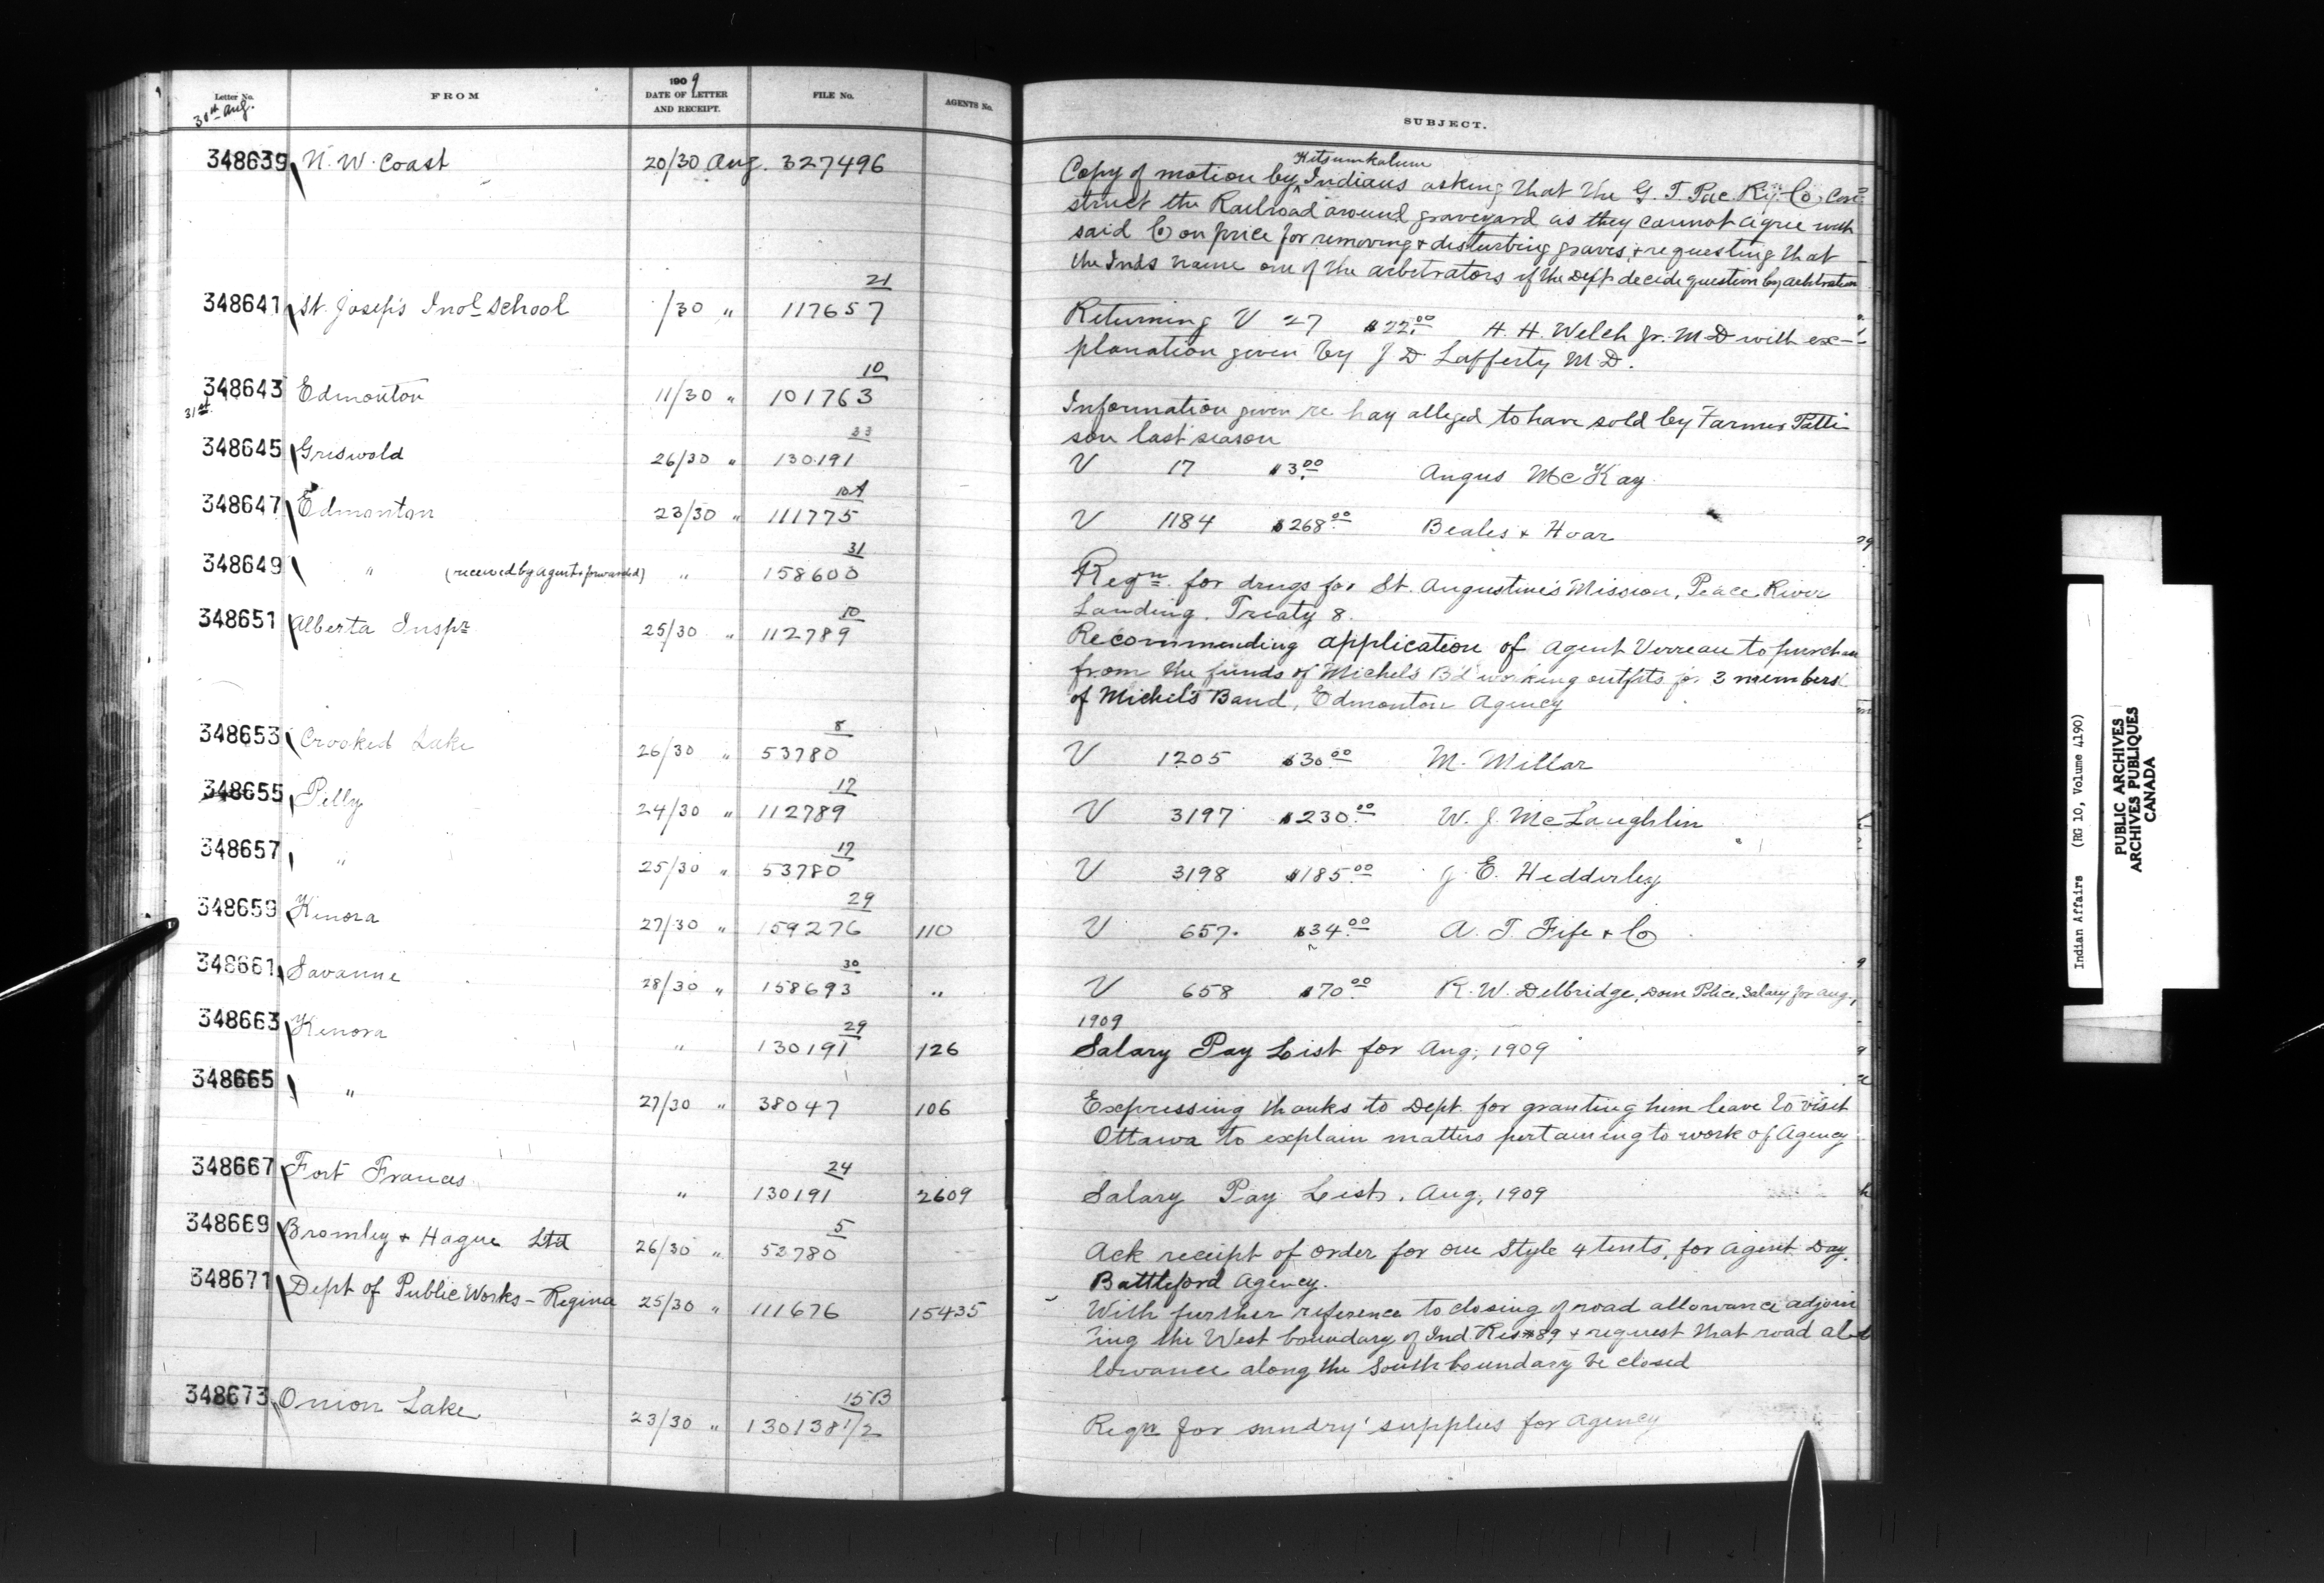 Letter No. FROM 1909 DATE OF LETTER AND RECEIPT. FILE No. AGENTS No. SUBJECT.
30th Aug.
348639 N. W. Coast 20/30 Aug. 327496 Copy of motion by Kitsumkalum Indians asking that the G. T. Pac. Ry. Co. con=
struct the Railroad around graveyard as they cannot agree with
said Co on price for removing & disturbing graves, & requesting that
the Inds name one of the arbetrators if the Dept decide question by arbitration
348641 St. Joseph's Indl School /30 " 117657 21 Returning V 27 $22.00 H. H. Welch Jr. M D with ex-
planation given by J D Lafferty M. D.
348643 Edmonton 11/30 " 101763 10 Information given re hay alleged to have sold by Farmer Patti
31st
son last season
348645 Griswold 26/30 " 130191 33 V 17 $3.00 Angus McKay
348647 Edmonton 23/30 " 111775 10A V 1184 $268.00 Beales & Hoar
348649 " (received by agent & forwarded) " 158600 31 Reqn. for drugs for St. Augustine's Mission, Peace River
Landing, Treaty 8.
348651 Alberta Inspr. 25/30 " 112789 10 Recommending application of Agent Verreau to purchase
from the funds of Michel's Bd working outfits for 3 members
of Michel's Band, Edmonton Agency
348653 Crooked Lake 26/30 " 53780 8 V 1205 $30.00 M. Millar
348655 Pelly 24/30 " 112789 17 V 3197 $230.00 W. J. McLaughlin
348657 " 25/30 " 53780 17 V 3198 $185.00 J. E. Hedderley
348659 Kenora 27/30 " 159276 29 110 V 657. $34.00 A. T. Fife & Co
348661 Savanne 28/30 " 158693 30 " V 658 $70.00 R. W. Delbridge, Dom Police, Salary for Aug.,
1909
348663 Kenora " 130191 29 126 Salary Pay List for Aug, 1909
348665 " 27/30 " 38047 106 Expressing thanks to Dept. for granting him leave to visit
Ottawa to explain matters pertaining to work of Agency
348667 Fort Frances " 130191 24 2609 Salary Pay List, Aug, 1909
348669 Bromley & Hague Ltd 26/30 " 53780 5 Ack receipt of order for one style 4 tents, for Agent Day.
Battleford Agency.
348671 Dept of Public Works - Regina 25/30 " 111676 15435 With further reference to closing of road allowance adjoin
ing the West boundary of Ind. Res #89 & request that road al-
lowance along the South boundary be closed
348673 Onion Lake 23/30 " 130138 1/2 15B Reqn for sundry supplies for agency
Indian Affairs (RG 10, Volume 4190)
PUBLIC ARCHIVES
ARCHIVES PUBLIQUES
CANADA